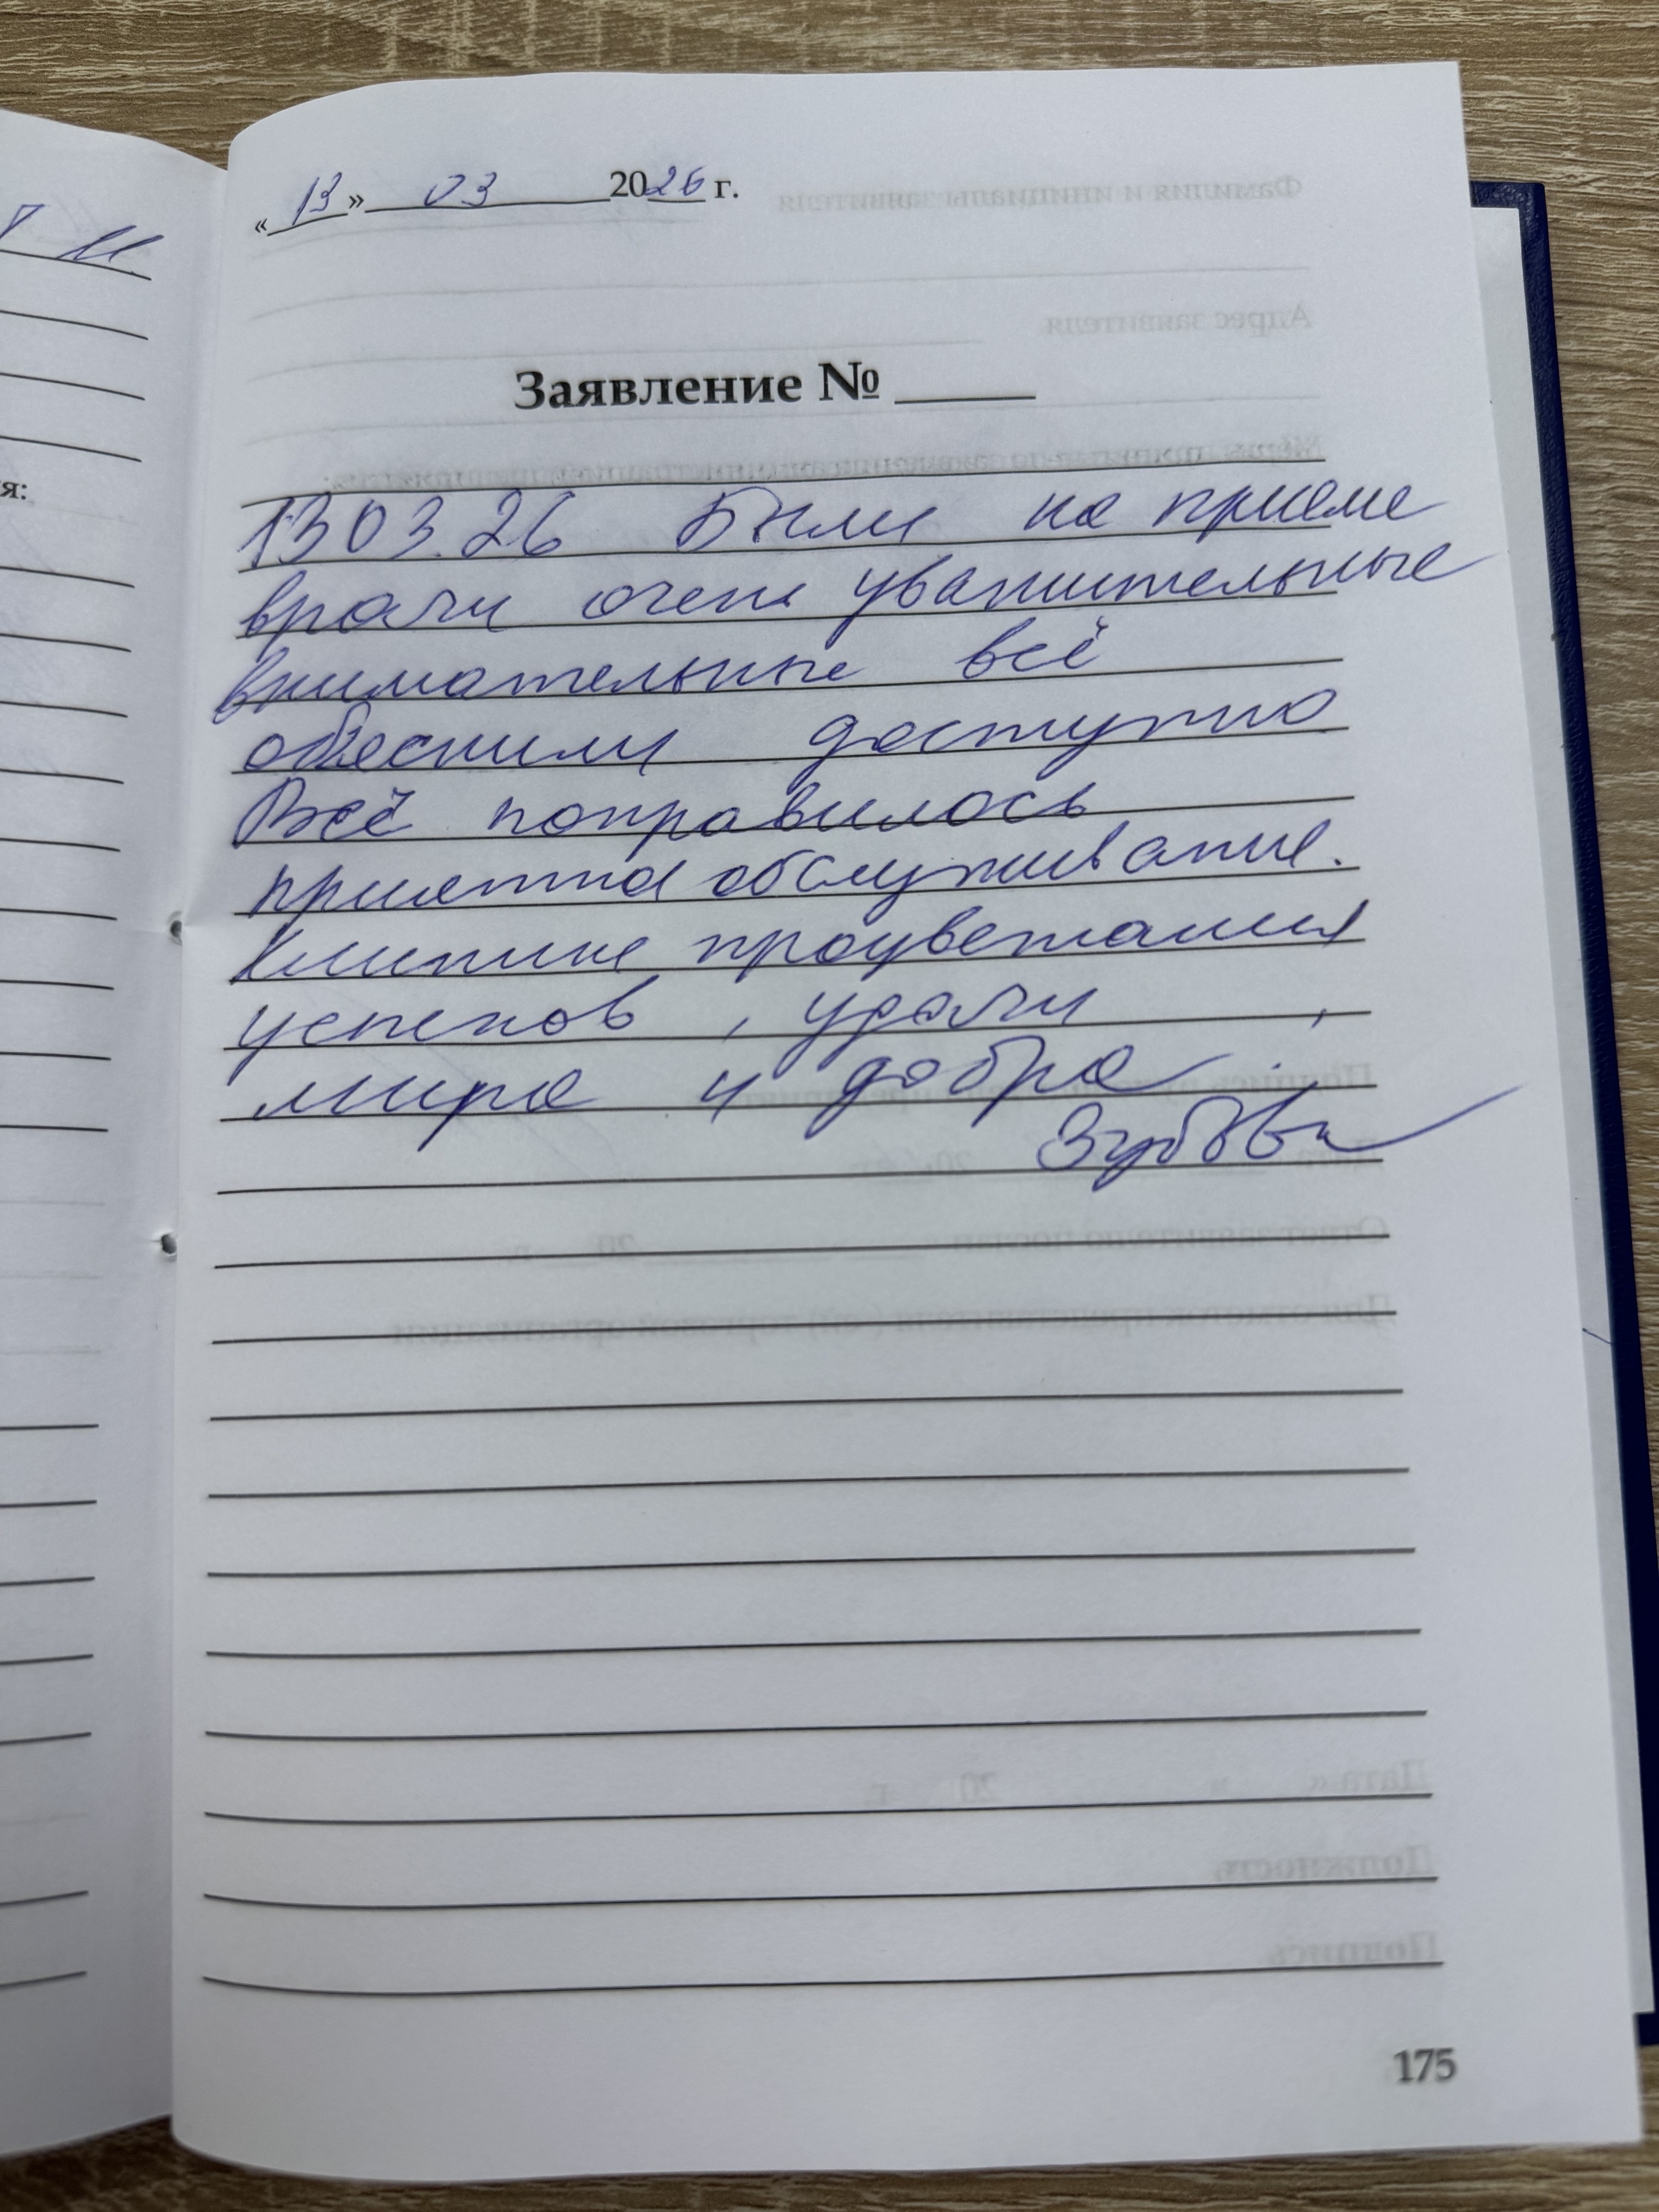 «13» 03 2026 г.
Заявление № ____
13 03.26 Были на приеме
врачи очень уважительные
внимательные всё
обяснили доступно
Всё понравилось
приятно обслуживание.
Клинике процветания
успехов , удачи ,
мира и добра
Зубова
175
я: